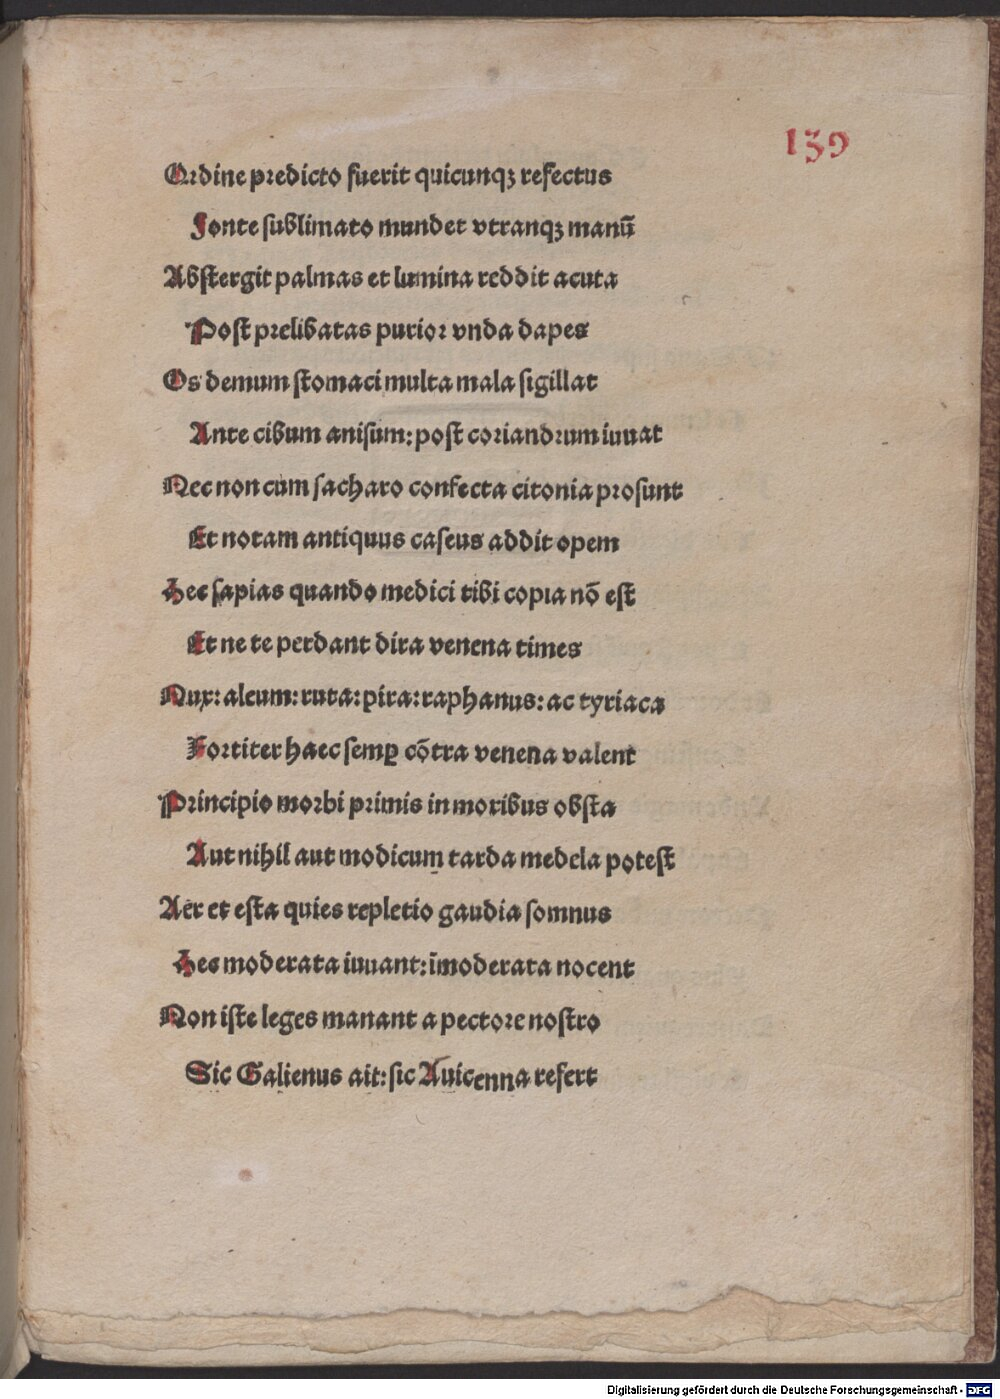 139
Ordine predicto fuerit quicunqꝫ refectus
Fonte sublimato mundet vtranqꝫ manū
Abstergit palmas et lumina reddit acuta
Post prelibatas purior vnda dapes
Os demum stomaci multa mala sigillat
Ante cibum anisum: post coriandrum iuuat
Nec non cum sacharo confecta citonia prosunt
Et notam antiquus caseus addit opem
Hec sapias quando medici tibi copia nō est
Et ne te perdant dira venena times
Nux: aleum: ruta: pira: raphanus: ac tyriaca
Fortiter haec semꝑ cōtra venena valent
Principio morbi primis in moribus obsta
Aut nihil aut modicum tarda medela potest
Aer et esta quies repletio gaudia somnus
Hec moderata iuuant: īmoderata nocent
Non iste leges manant a pectore nostro
Sic Galienus ait: sic Auicenna refert
Digitalisierung gefördert durch die Deutsche Forschungsgemeinschaft - DFG